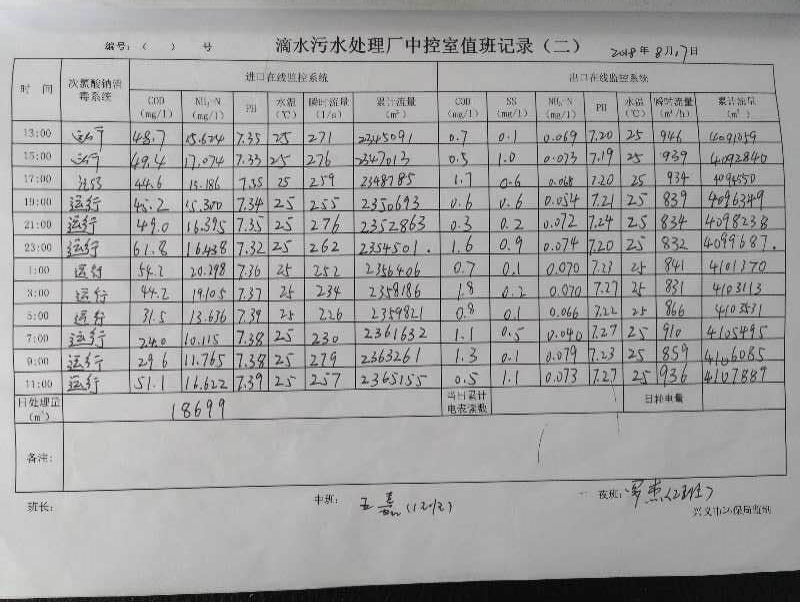 编号：（ ）号 滴水污水处理厂中控室值班记录（二） 2018年8月17日
时 间 次氯酸钠消毒系统 进口在线监控系统 出口在线监控系统
COD (mg/l) NH₃-N (mg/l) PH 水温 (℃) 瞬时流量 (l/s) 累计流量 (m³) COD (mg/l) SS (mg/l) NH₃-N (mg/l) PH 水温 (℃) 瞬时流量 (m³/h) 累计流量 (m³)
13:00 运行 48.7 15.624 7.35 25 271 2345091 0.7 0.1 0.069 7.20 25 946 4091059
15:00 运行 49.4 17.074 7.33 25 276 2347013 0.5 1.0 0.073 7.19 25 939 4092840
17:00 44.6 15.186 7.35 25 259 2348785 1.7 0.6 0.068 7.20 25 934 4094550
19:00 运行 45.2 15.300 7.34 25 255 2350693 0.6 0.6 0.054 7.21 25 839 4096349
21:00 运行 49.0 16.395 7.35 25 276 2352863 0.3 0.2 0.072 7.24 25 834 4098238
23:00 运行 61.8 16.438 7.32 25 262 2354501. 1.6 0.9 0.074 7.20 25 832 4099687.
1:00 运行 54.2 20.298 7.36 25 252 2356406 0.7 0.1 0.070 7.23 25 841 4101370
3:00 运行 44.2 19.105 7.37 25 234 2358186 1.8 0.2 0.070 7.27 25 831 4103113
5:00 运行 31.5 13.636 7.39 25 226 2359821 0.8 0.1 0.066 7.22 25 866 4103531
7:00 运行 24.0 10.115 7.38 25 230 2361632 1.1 0.5 0.040 7.27 25 910 4105495
9:00 运行 29.6 11.765 7.38 25 279 2363261 1.3 0.1 0.079 7.23 25 859 4106085
11:00 运行 51.1 16.622 7.39 25 257 2365155 0.5 1.1 0.073 7.27 25 936 4107887
日处理量(m³) 18699 当日累计电表读数 日耗电量
备注：
班长： 中班： 王 夜班： 罗杰
兴义市环保局监制